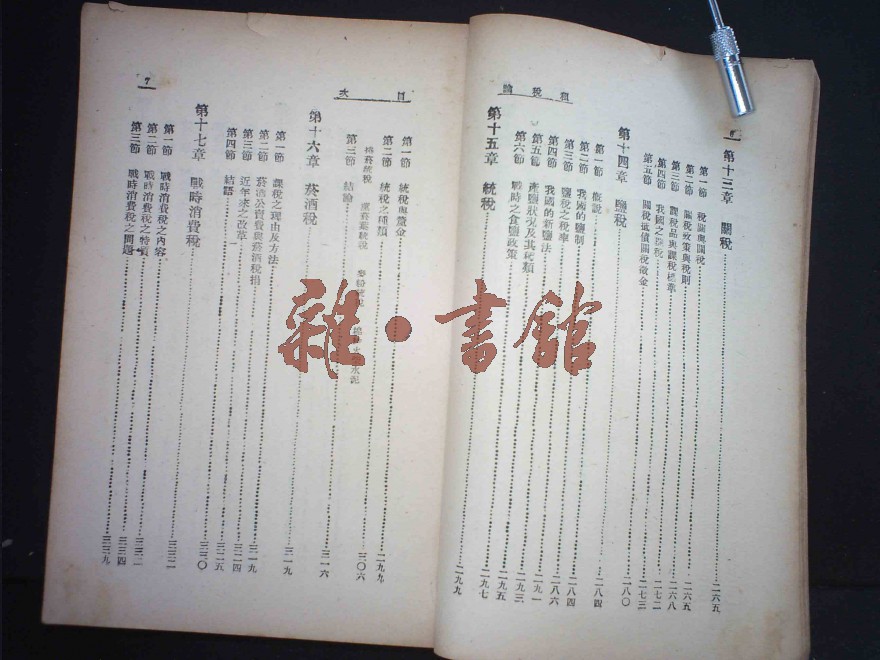 論稅租
6
第十三章 關稅……二六五
第一節 稅關與關稅……二六五
第二節 關稅政策與稅則……二六八
第三節 課稅品與課稅標準……二七二
第四節 我國之關稅……二七三
第五節 關稅抵債關稅儆金……
第十四章 鹽稅……二八〇
第一節 概說……二八四
第二節 我國的鹽制……二八四
第三節 鹽稅之稅率……二八六
第四節 我國的新鹽法……二九一
第五節 產鹽狀況及其種類……二九三
第六節 戰時之食鹽政策……二九五
第十五章 統稅……二九七
目次
7
第一節 統稅與釐金……二九九
第二節 統稅之種類……二九九
捲菸統稅 薰菸葉統稅 麥粉統稅 水泥
第三節 結論……三〇六
第十六章 菸酒稅……三一六
第一節 課稅之理由及方法……三一九
第二節 菸酒公賣費與菸酒稅捐……三一九
第三節 近年來之改革……三二四
第四節 結語……三二五
第十七章 戰時消費稅……三三〇
第一節 戰時消費稅之內容……三三二
第二節 戰時消費稅之特質……三三一
第三節 戰時消費稅之問題……三三九
雜·書館